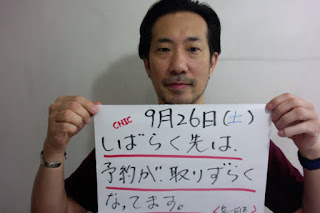 CHIC 9月26日(土)
しばらく先は、
予約が、取りずらく
なってます。